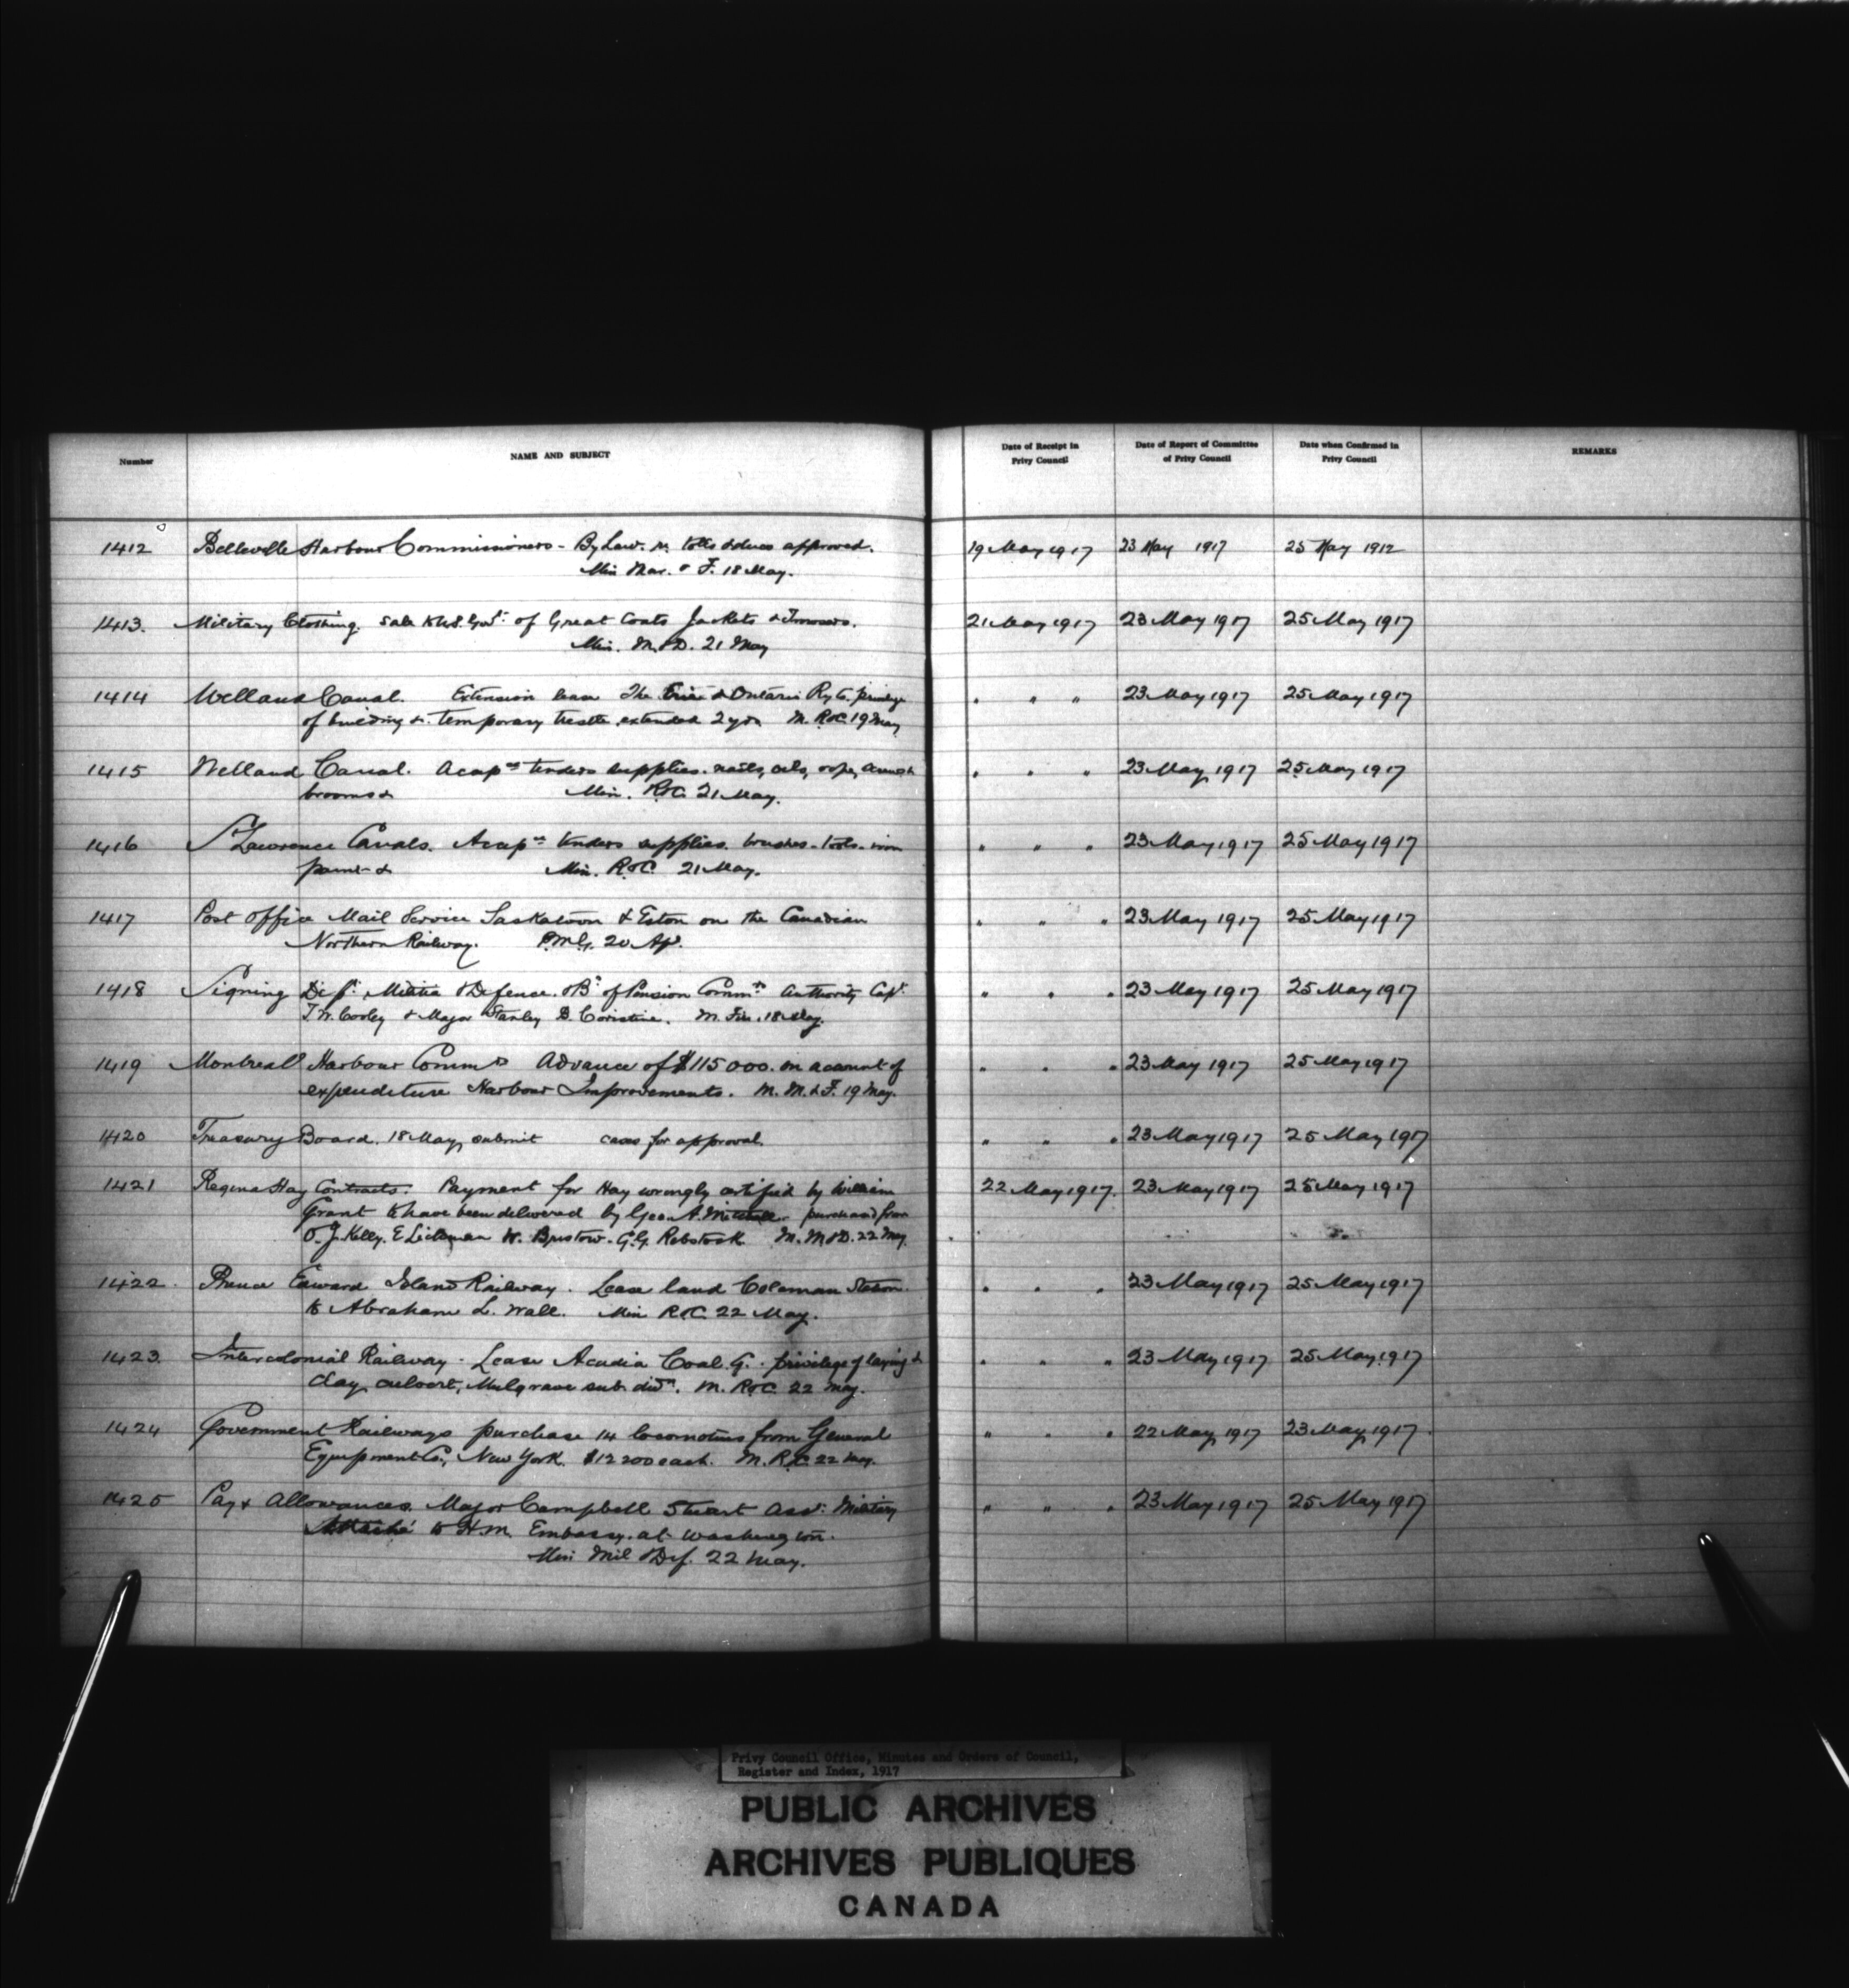 Number
NAME AND SUBJECT
Date of Receipt in Privy Council
Date of Report of Committee of Privy Council
Date when Confirmed in Privy Council
REMARKS
1412 Belleville Harbour Commissioners - By Law. re tolls & dues approved. 19 May 1917 23 May 1917 25 May 1917
Min Mar. & F. 18 May.
1413. Military Clothing. Sale to U.S. Govt. of Great Coats Jackets & Trousers. 21 May 1917 23 May 1917 25 May 1917
Min. M. & D. 21 May
1414 Welland Canal. Extension lease The Erie & Ontario Ry Co. privilege " " " 23 May 1917 25 May 1917
of building &c. temporary trestle extended 2 yrs M. R&C 19 May
1415 Welland Canal. Accepce tenders supplies. nails, oils, rope, " " " 23 May 1917 25 May 1917
brooms &c Min. R&C. 21 May.
1416 St Lawrence Canals. Accepce tenders supplies. brushes - tools - iron " " " 23 May 1917 25 May 1917
paint &c Min. R&C 21 May.
1417 Post Office Mail Service Saskatoon & Eston on the Canadian " " " 23 May 1917 25 May 1917
Northern Railway. P.M.G. 20 Ap.
1418 Signing Dept. Militia & Defence. & Bd of Pension Commrs Authority Capt. " " " 23 May 1917 25 May 1917
T. W. Cooley & Major Stanley B. Christie. M. Fin. 18 May.
1419 Montreal Harbour Commrs Advance of $115 000. on account of " " " 23 May 1917 25 May 1917
expenditure Harbour Improvements. M. M. & F. 19 May.
1420 Treasury Board. 18 May, submit cases for approval. " " " 23 May 1917 25 May 1917
1421 Regina Hay Contracts. Payment for Hay wrongly certified by William 22 May 1917. 23 May 1917 25 May 1917
Grant to have been delivered by Geo. A. Mitchell - purchased from
O. J. Kelly. E W. Bristow. G. G. Rebstock M. M&D. 22 May.
1422. Prince Edward Island Railway. Lease land Coleman Station. " " " 23 May 1917 25 May 1917
to Abraham L. Wall. Min R&C. 22 May.
1423. Intercolonial Railway. Lease Acadia Coal Co. privilege of laying a " " " 23 May 1917 25 May 1917
clay culvert, Mulgrave sub. divn. M. R&C 22 May.
1424 Government Railways purchase 14 locomotives from General " " " 22 May 1917 23 May 1917.
Equipment Co., New York. $12 200 each. M. R&C. 22 May.
1425 Pay & Allowances. Major Campbell Stuart Asst. Military " " " 23 May 1917 25 May 1917
Attaché to H.M. Embassy. at Washington.
Min Mil & Def. 22 May.
Privy Council Office, Minutes and Orders of Council,
Register and Index, 1917
PUBLIC ARCHIVES
ARCHIVES PUBLIQUES
CANADA